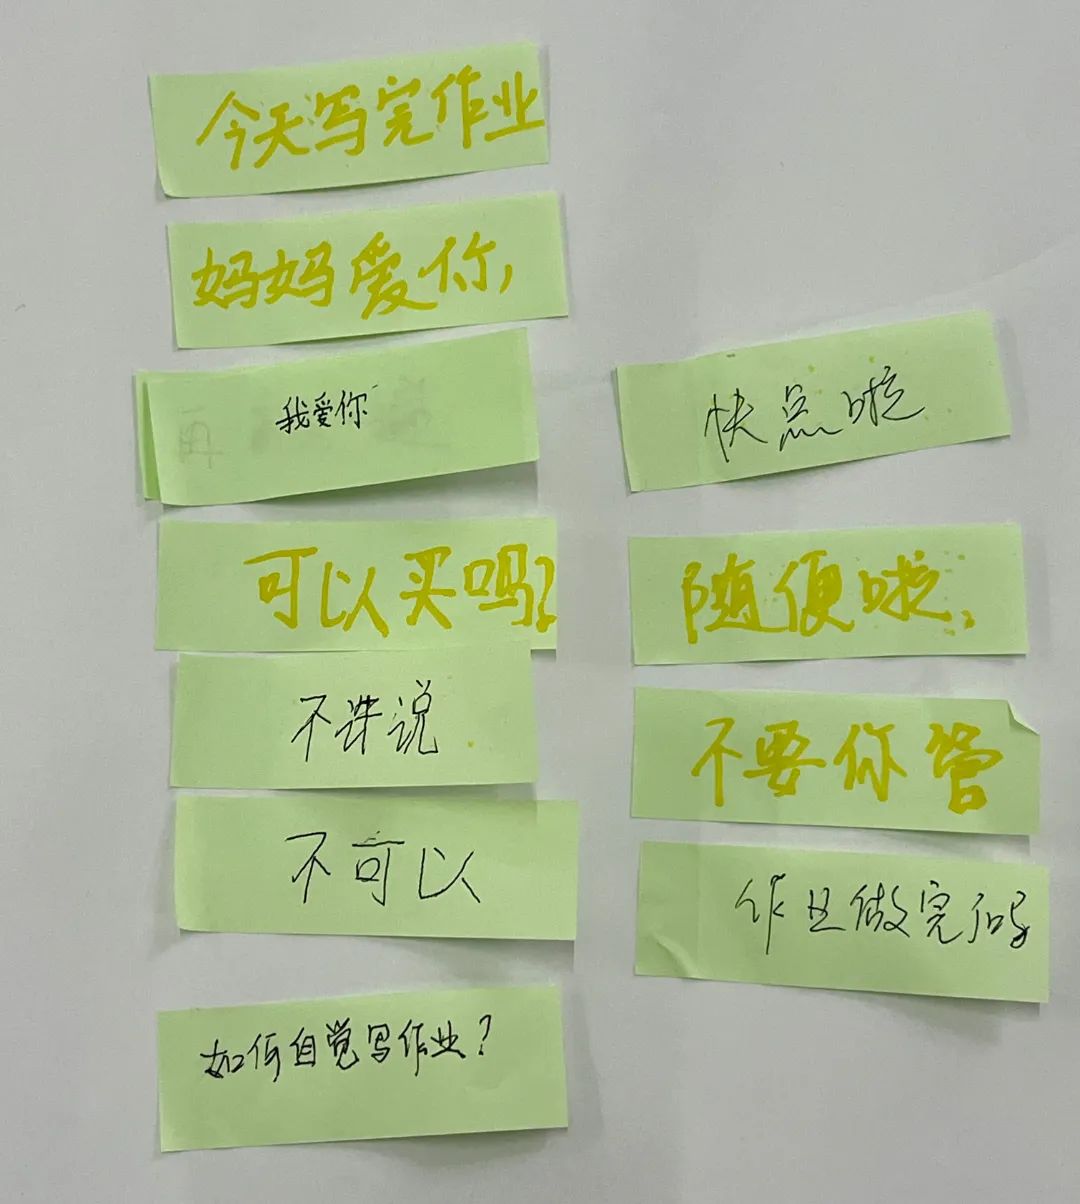 今天写完作业
妈妈爱你,
我爱你
可以买吗?
不说
不可以
如何自觉写作业?
快点啦
随便啦,
不要你管
作业做完吗